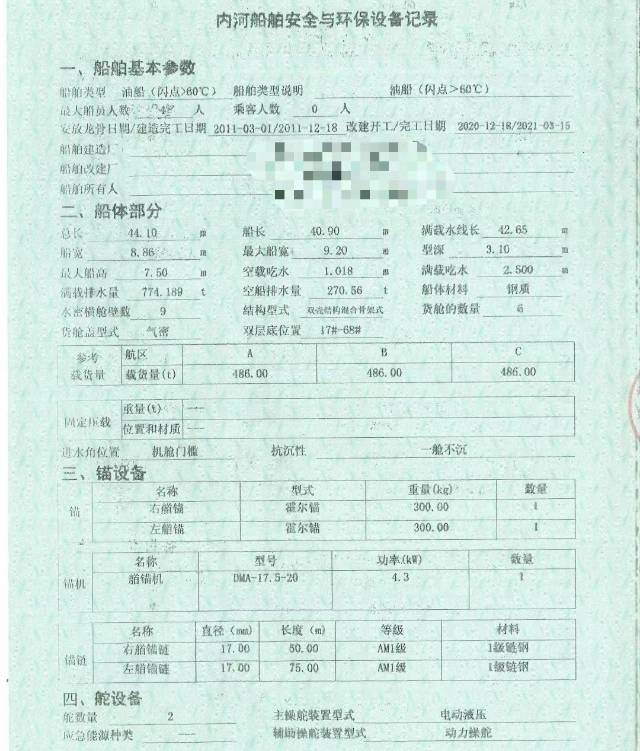 内河船舶安全与环保设备记录
一、船舶基本参数
船舶类型 油船（闪点>60℃） 船舶类型说明 油船（闪点>60℃）
最大船员人数 人 乘客人数 0 人
安放龙骨日期/建造完工日期 2011-03-01/2011-12-18 改建开工/完工日期 2020-12-18/2021-03-15
船舶建造厂
船舶改建厂
船舶所有人
二、船体部分
总长 44.10 m 船长 40.90 m 满载水线长 42.65 m
船宽 8.86 m 最大船宽 9.20 m 型深 3.10 m
最大船高 7.50 m 空载吃水 1.018 m 满载吃水 2.500 m
满载排水量 774.189 t 空船排水量 270.56 t 船体材料 钢质
水密横舱壁数 9 结构型式 双壳结构混合骨架式 货舱的数量 6
货舱盖型式 气密 双层底位置 17#-68#
参考载货量 航区 A B C
载货量(t) 486.00 486.00 486.00
固定压载 重量(t) ——
位置和材质 ——
进水角位置 机舱门槛 抗沉性 一舱不沉
三、锚设备
名称 型式 重量(kg) 数量
锚 右艏锚 霍尔锚 300.00 1
左艏锚 霍尔锚 300.00 1
名称 型号 功率(kW) 数量
锚机 艏锚机 DMA-17.5-20 4.3 1
名称 直径（mm） 长度（m） 等级 材料
锚链 右艏锚链 17.00 50.00 AM1级 1级链钢
左艏锚链 17.00 75.00 AM1级 1级链钢
四、舵设备
舵数量 2 主操舵装置型式 电动液压
应急能源种类 —— 辅助操舵装置型式 动力操舵